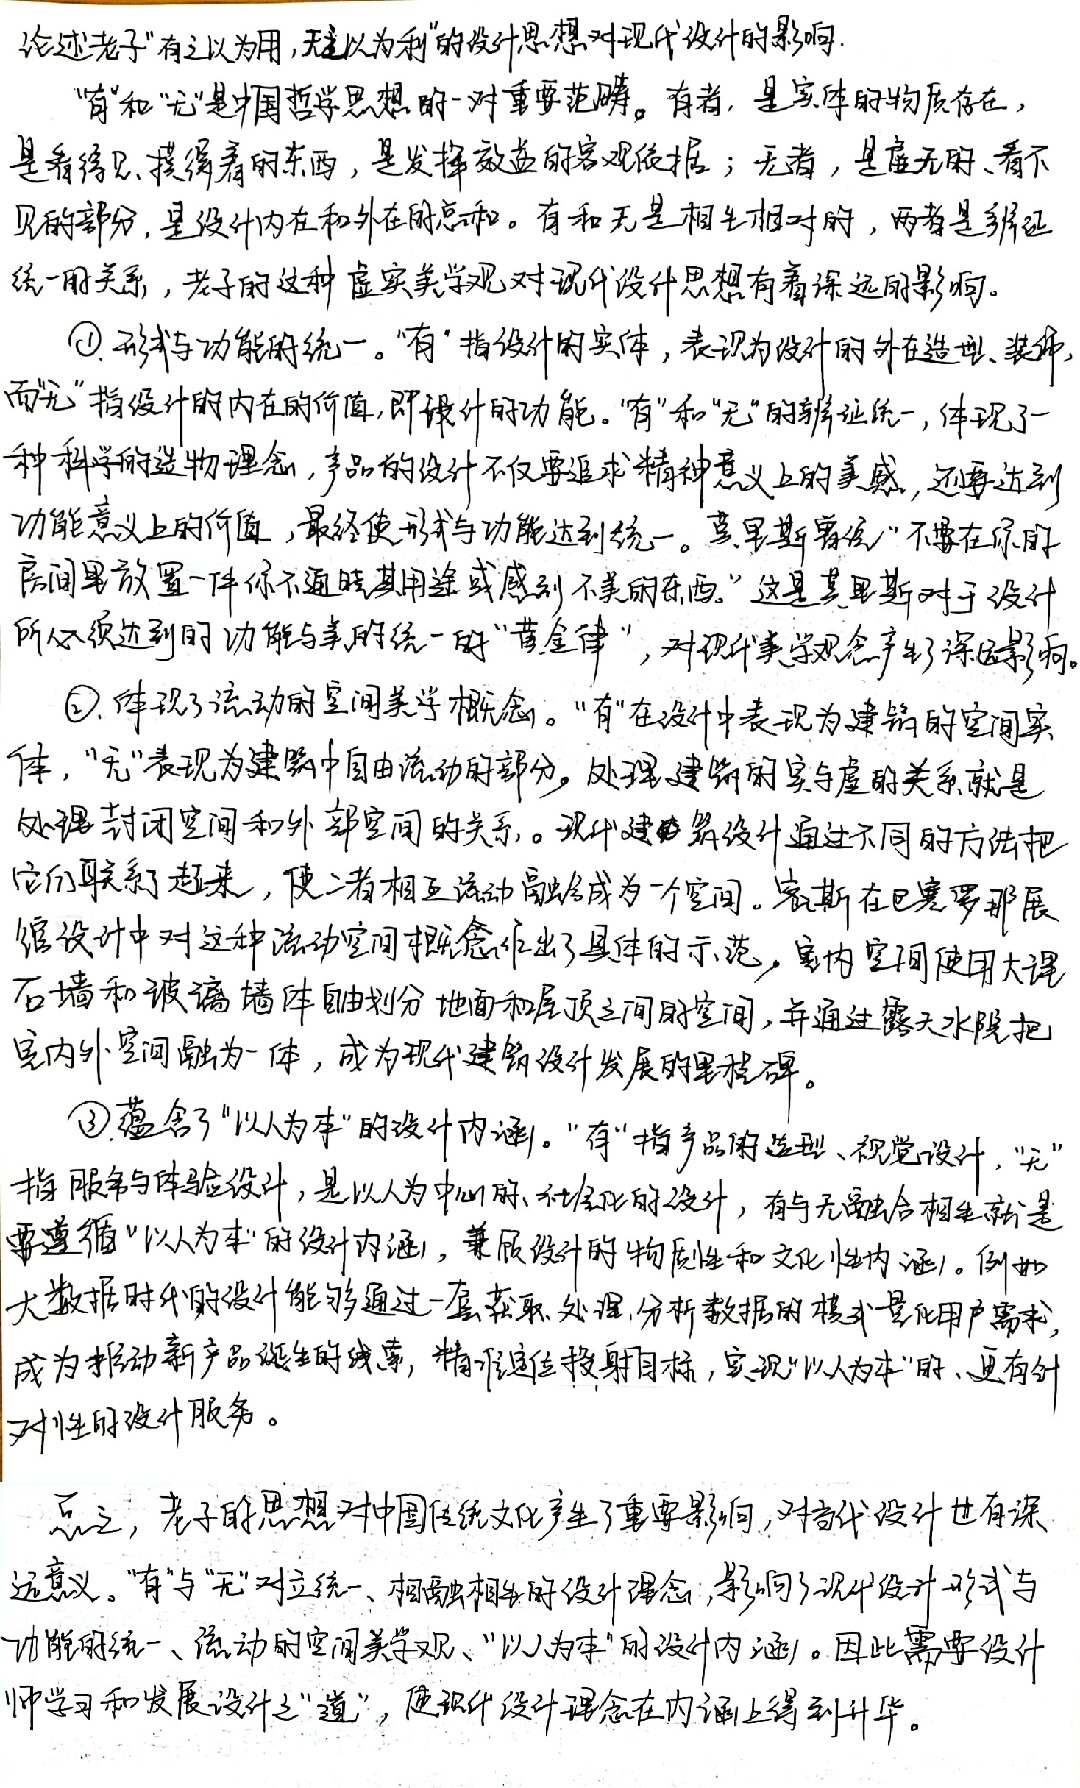 论述老子"有之以为用,无之以为利"的设计思想对现代设计的影响.
"有"和"无"是中国哲学思想的一对重要范畴。有者,是实体的物质存在,
是看得见、摸得着的东西,是发挥效益的客观依据;无者,是虚无的、看不
见的部分,是设计内在和外在的总和。有和无是相生相对的,两者是辨证
统一的关系,老子的这种虚实美学观对现代设计思想有着深远的影响。
①.形式与功能的统一。"有"指设计的实体,表现为设计的外在造型、装饰,
而"无"指设计的内在的价值,即设计的功能。"有"和"无"的辨证统一,体现了一
种科学的造物理念,产品的设计不仅要追求精神意义上的美感,还要达到
功能意义上的价值,最终使形式与功能达到统一。莫里斯曾说"不要在你的
房间里放置一件你不通晓其用途或感到不美的东西。"这是莫里斯对于设计
所必须达到的功能与美的统一的"黄金律",对现代美学观念产生了深远影响。
②.体现了流动的空间美学概念。"有"在设计中表现为建筑的空间实
体,"无"表现为建筑中自由流动的部分。处理建筑的实与虚的关系就是
处理封闭空间和外部空间的关系。现代建筑设计通过不同的方法把
它们联系了起来,使二者相互流动融合成为一个空间。密斯在巴塞罗那展
馆设计中对这种流动空间概念作出了具体的示范,室内空间使用大理
石墙和玻璃墙体自由划分地面和屋顶之间的空间,并通过露天水院把
室内外空间融为一体,成为现代建筑设计发展的里程碑。
③.蕴含了"以人为本"的设计内涵。"有"指产品的造型、视觉设计,"无"
指服务与体验设计,是以人为中心的、社会化的设计,有与无融合相生就是
要遵循"以人为本"的设计内涵,兼顾设计的物质性和文化性内涵。例如
大数据时代的设计能够通过一套获取、处理、分析数据的模式量化用户需求,
成为推动新产品诞生的线索,精准定位投射目标,实现"以人为本"的、更有针
对性的设计服务。
总之,老子的思想对中国传统文化产生了重要影响,对当代设计也有深
远意义。"有"与"无"对立统一、相融相生的设计理念,影响了现代设计形式与
功能的统一、流动的空间美学观、"以人为本"的设计内涵。因此需要设计
师学习和发展设计之"道",使现代设计理念在内涵上得到升华。